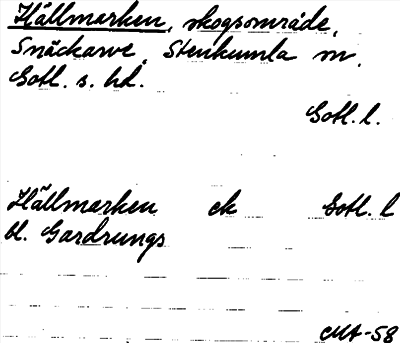 Hällmarken, skogsområde,
Snäckarve, Stenkumla sn,
Gotl. s. hd.
Gotl. l.
Hällmarken ek Gotl. l
bl. Gardrungs
CMA-58